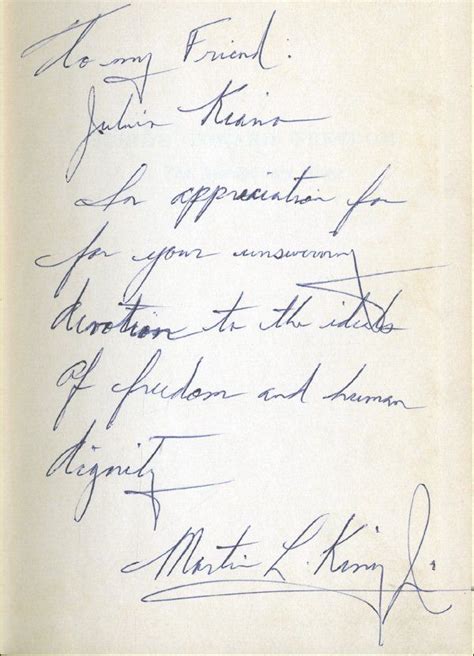 To my Friend:
Julian Keano
In appreciation for
for your unswerving
devotion to the ideals
of freedom and human
dignity
Martin L. King Jr.